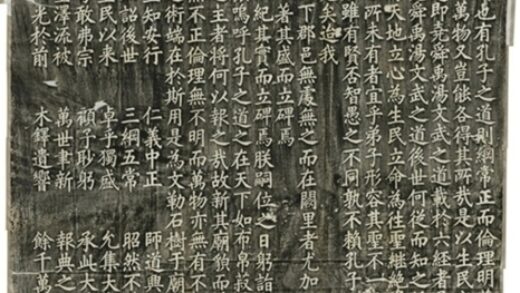 也有孔子之道則綱常正而倫理明
萬物又豈能各得其所哉是以生民
即堯舜禹湯文武之道載於六經者
舜禹湯文武之道後世何從而知之
天地立心為生民立命為往聖繼絕
所未有者宜乎弟子形容其聖不一
雖有賢否智愚之不同孰不賴孔子
矣迨我
下郡邑無處無之而在闕里者尤加
著其盛而立碑焉
紀其實而立碑焉朕嗣位之日躬詣
嗚呼孔子之道之在天下如布帛菽
之王者將何以報之哉故新其廟貌而
無不正倫理無不明而萬物亦無有不
之術端在於斯用是為文勒石樹于廟
生知安行 仁義中正 師道興
詔後世 三綱五常 昭然不
生民以來 卓乎獨盛 允集大
敢弗宗 顧予眇躬 承此大
聖澤流被 萬世聿新 報典之
光於前 木鐸遺響 餘千萬